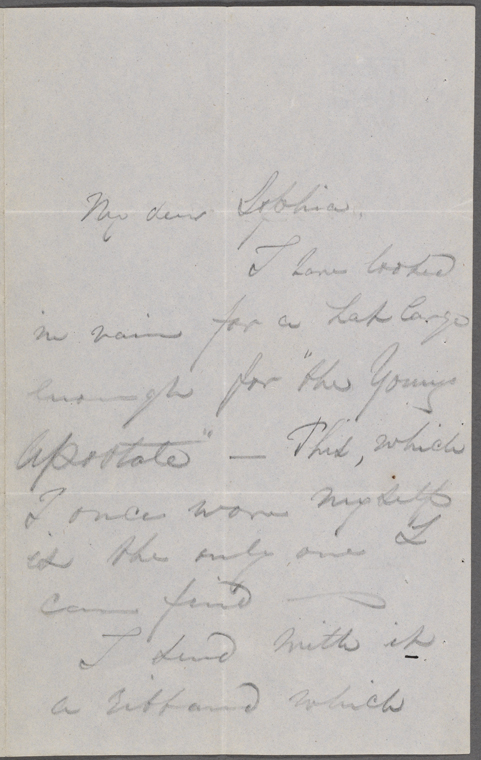 My dear Sophia,
I have looked
in vain for a hat large
enough for "the Young
Apostate" — This, which
I once wore myself
is the only one I
can find —
I send with it
a ribband which